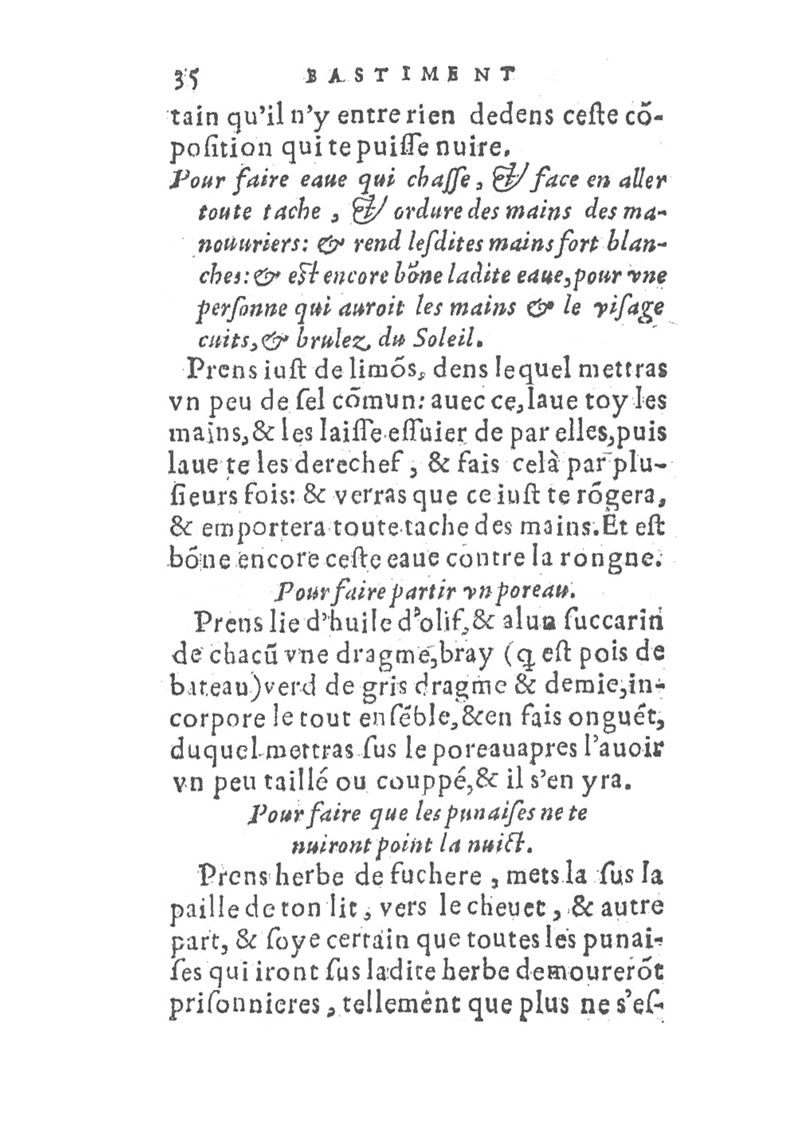 35 BASTIMENT
tain qu'il n'y entre rien dedens ceſte cõ-
poſition qui te puiſſe nuire.
Pour faire eaue qui chaſſe, & face en aller
toute tache, & ordure des mains des ma-
nouuriers: & rend leſdites mains fort blan-
ches: & eſt encore bõne ladite eaue, pour vne
perſonne qui auroit les mains & le viſage
cuits, & brulez du Soleil.
Prens iuſt de limõs, dens lequel mettras
vn peu de ſel cõmun: auec ce, laue toy les
mains, & les laiſſe eſſuier de par elles, puis
laue te les derechef, & fais celà par plu-
ſieurs fois: & verras que ce iuſt te rõgera,
& emportera toute tache des mains. Et eſt
bõne encore ceſte eaue contre la rongne.
Pour faire partir vn poreau.
Prens lie d'huile d'olif, & alun ſuccarin
de chacũ vne dragme, bray (q̃ eſt pois de
bateau) verd de gris dragme & demie, in-
corpore le tout enſẽble, & en fais onguẽt,
duquel mettras ſus le poreau apres l'auoir
vn peu taillé ou couppé, & il s'en yra.
Pour faire que les punaiſes ne te
nuiront point la nuict.
Prens herbe de fuchere, mets la ſus la
paille de ton lit, vers le cheuet, & autre
part, & ſoye certain que toutes les punai-
ſes qui iront ſus ladite herbe demourerõt
priſonnieres, tellement que plus ne s'eſ-